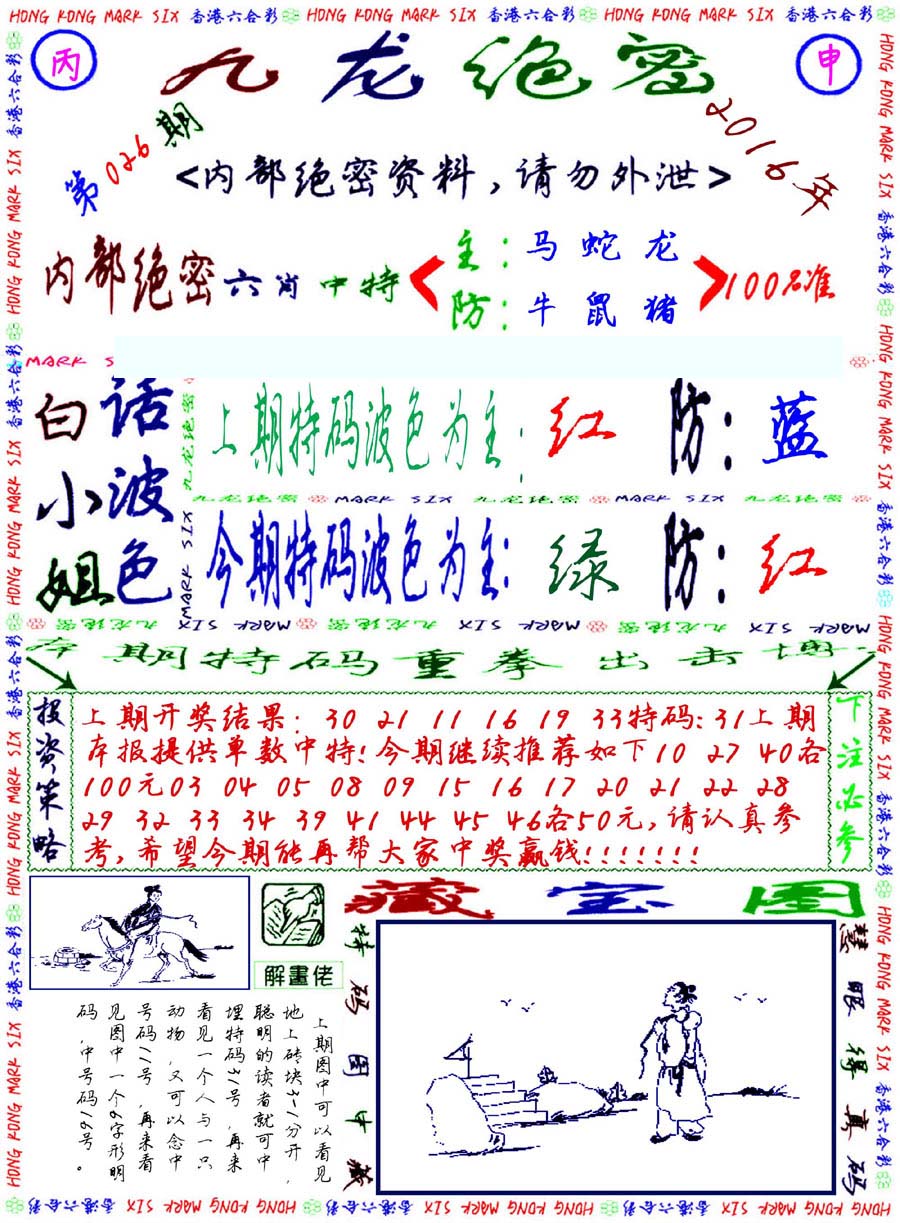 HONG KONG MARK SIX 香港六合彩 HONG KONG MARK SIX 香港六合彩 HONG KONG MARK SIX 香港六合彩
丙
九龙绝密
申
第026期
2016年
<内部绝密资料，请勿外泄>
内部绝密六肖中特
主：马蛇龙
防：牛鼠猪
100%准
MARK S
白话
小波
姐色
九龙绝密
MARK SIX
上期特码波色为主：红 防：蓝
九龙绝密 MARK SIX 九龙绝密 MARK SIX 九龙绝密
今期特码波色为主：绿 防：红
MARK SIX 九龙绝密 MARK SIX 九龙绝密 MARK SIX 九龙绝密
期特码重拳出击
投资策略
上期开奖结果：30 21 11 16 19 33特码：31上期
本报提供单数中特！今期继续推荐如下10 27 40各
100元03 04 05 08 09 15 16 17 20 21 22 28
29 32 33 34 39 41 44 45 46各50元，请认真参
考，希望今期能再帮大家中奖赢钱！！！！！！！
下注必参
解畫佬
藏宝图
上期图中可以看见
地上砖块3-1分开，
聪明的读者就可中
埋特码31号，再来
看见一个人与一只
动物，又可以念中
号码11号，再来看
见图中一个6字形明
码，中号码16号。
特码图中藏
慧眼得真码
HONG KONG MARK SIX 香港六合彩 HONG KONG MARK SIX 香港六合彩 HONG KONG MARK SIX 香港六合彩